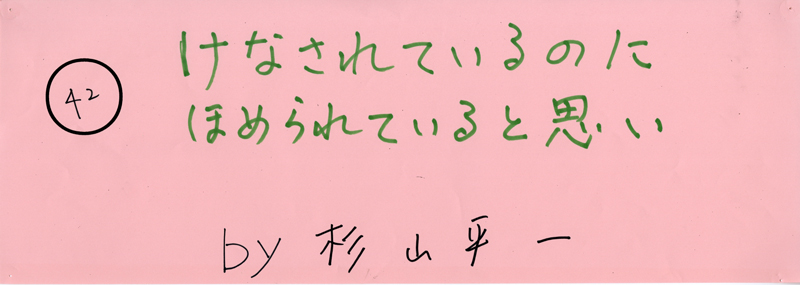 42
けなされているのに
ほめられていると思い
by 杉山平一